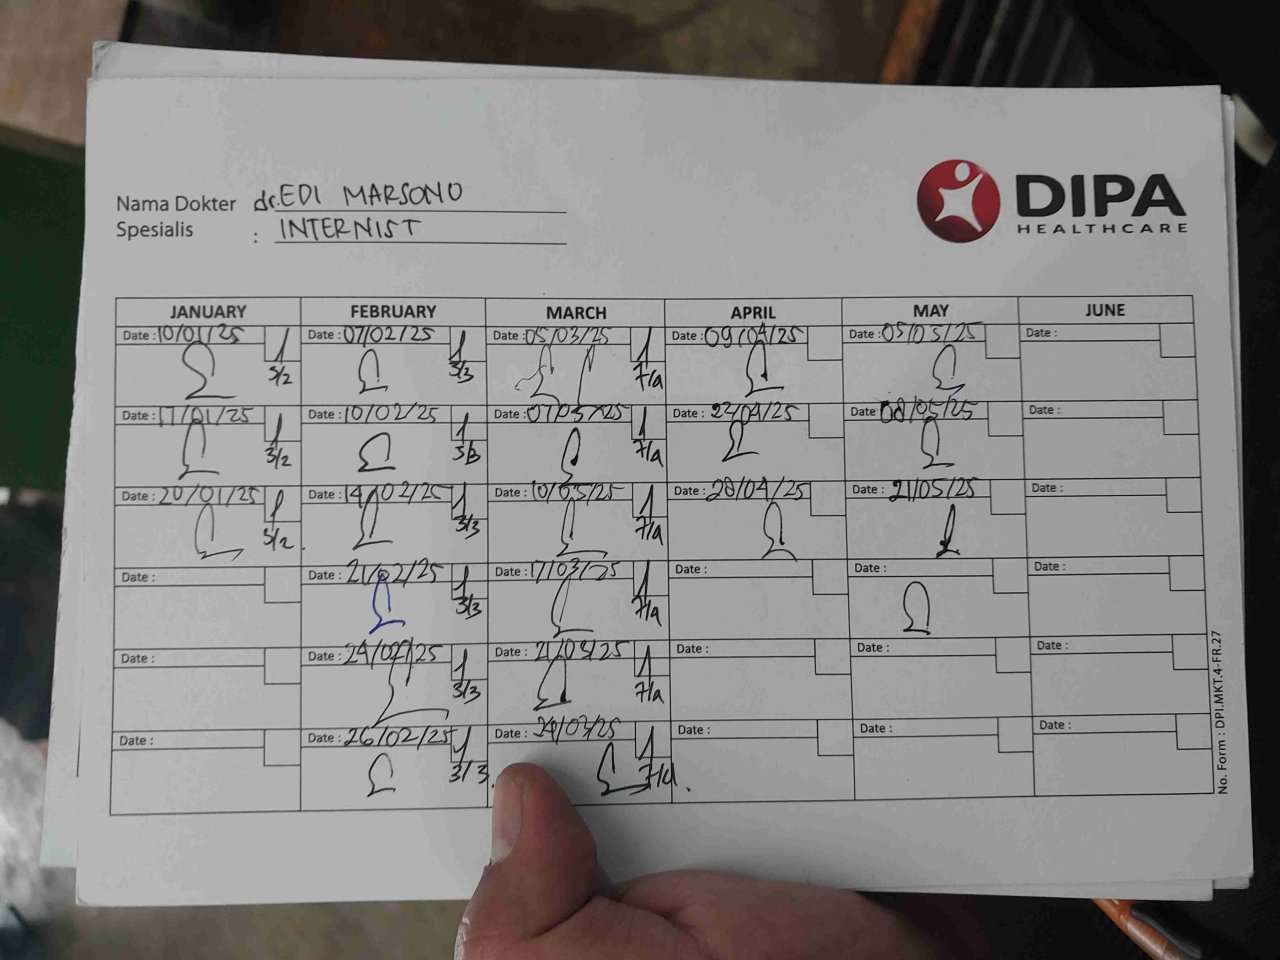 Nama Dokter dr. EDI MARSONO
Spesialis : INTERNIST
DIPA
HEALTHCARE
JANUARY FEBRUARY MARCH APRIL MAY JUNE
Date : 10/01/25 Date : 07/02/25 Date : 05/03/25 Date : 09/04/25 Date : 05/05/25 Date :
3/2 3/3 7/4
Date : 17/01/25 Date : 10/02/25 Date : 07/03/25 Date : 22/04/25 Date : 08/05/25 Date :
3/2 3/3 7/4
Date : 20/01/25 Date : 14/02/25 Date : 10/03/25 Date : 28/04/25 Date : 21/05/25 Date :
3/2 3/3 7/4
Date : Date : 21/02/25 Date : 17/03/25 Date : Date : Date :
3/3 7/4
Date : Date : 24/02/25 Date : 21/03/25 Date : Date : Date :
3/3 7/4
Date : Date : 26/02/25 Date : 24/03/25 Date : Date : Date :
3/3 7/4
No. Form : DPI.MKT.4-FR.27